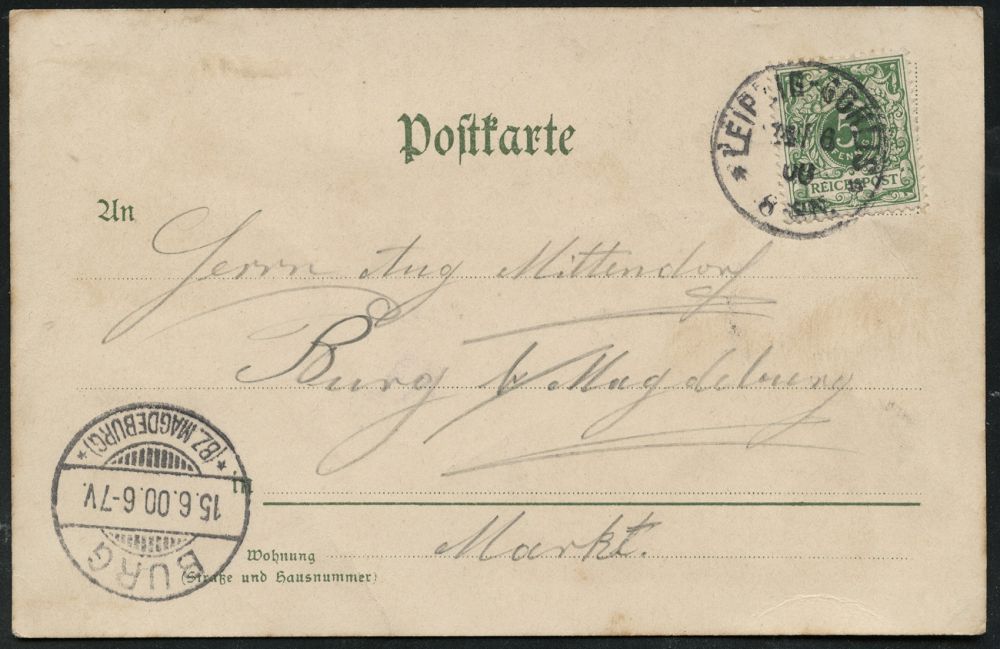 Poſtkarte
LEIPZIG-GOHLIS
6
00
8
5
PFENNIG
REICHSPOST
An
Herrn Aug Mittendorf
Burg b/ Magdeburg
in
Markt.
Wohnung
(Straße und Hausnummer)
BURG
15.6.00.6-7V.
* (BZ. MAGDEBURG) *